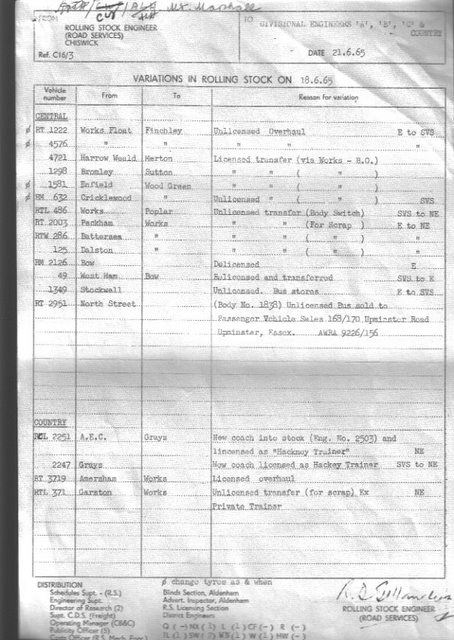 Mr. Marshall
ROLLING STOCK ENGINEER
(ROAD SERVICES)
CHISWICK
TO DIVISIONAL ENGINEERS 'A', 'B', 'C' &
COUNTRY
Ref. C16/3
DATE 21.6.65
VARIATIONS IN ROLLING STOCK ON 18.6.65
Vehicle number From To Reason for variation
CENTRAL
ø RT 1222 Works Float Finchley Unlicensed Overhaul E to SVS
ø 4576 " " " " "
4721 Harrow Weald Merton Licensed transfer (via Works - B.O.)
1298 Bromley Sutton " " ( " )
ø 1581 Enfield Wood Green " " ( " )
ø RM 632 Cricklewood " Unlicensed " ( " ) SVS
RTL 486 Works Poplar Unlicensed transfer (Body Switch) SVS to NE
RT 2003 Peckham Works " " (For Scrap) E to NE
RTW 286 Battersea " " " ( " ) "
125 Dalston " " " ( " ) "
RM 2126 Bow Delicensed E
49 West Ham Bow Relicensed and transferred SVS to E
1349 Stockwell Unlicensed. Bus stores E to SVS
RT 2951 North Street (Body No. 1838) Unlicensed Bus sold to
Passenger Vehicle Sales 168/170 Upminster Road
Upminster, Essex. AWRA 9226/156
COUNTRY
RCL 2251 A.E.C. Grays New coach into stock (Eng. No. 2503) and
lincensed as "Hackney Trainer" NE
2247 Grays Now coach licensed as Hackey Trainer SVS to NE
RT 3719 Amersham Works Licensed overhaul
RTL 371 Garston Works Unlicensed transfer (for scrap) Ex NE
Private Trainer
DISTRIBUTION
ø change tyros as & when
Schedules Supt. - (R.S.)
Engineering Supt.
Director of Research (2)
Supt. C.D.S. (Freight)
Operating Manager (CB&C)
Publicity Officer (5)
Costs Officer (R.S. Mech. Engr.)
Blinds Section, Aldenham
Advert. Inspector, Aldenham
R.S. Licensing Section
District Engineers
ROLLING STOCK ENGINEER
(ROAD SERVICES)